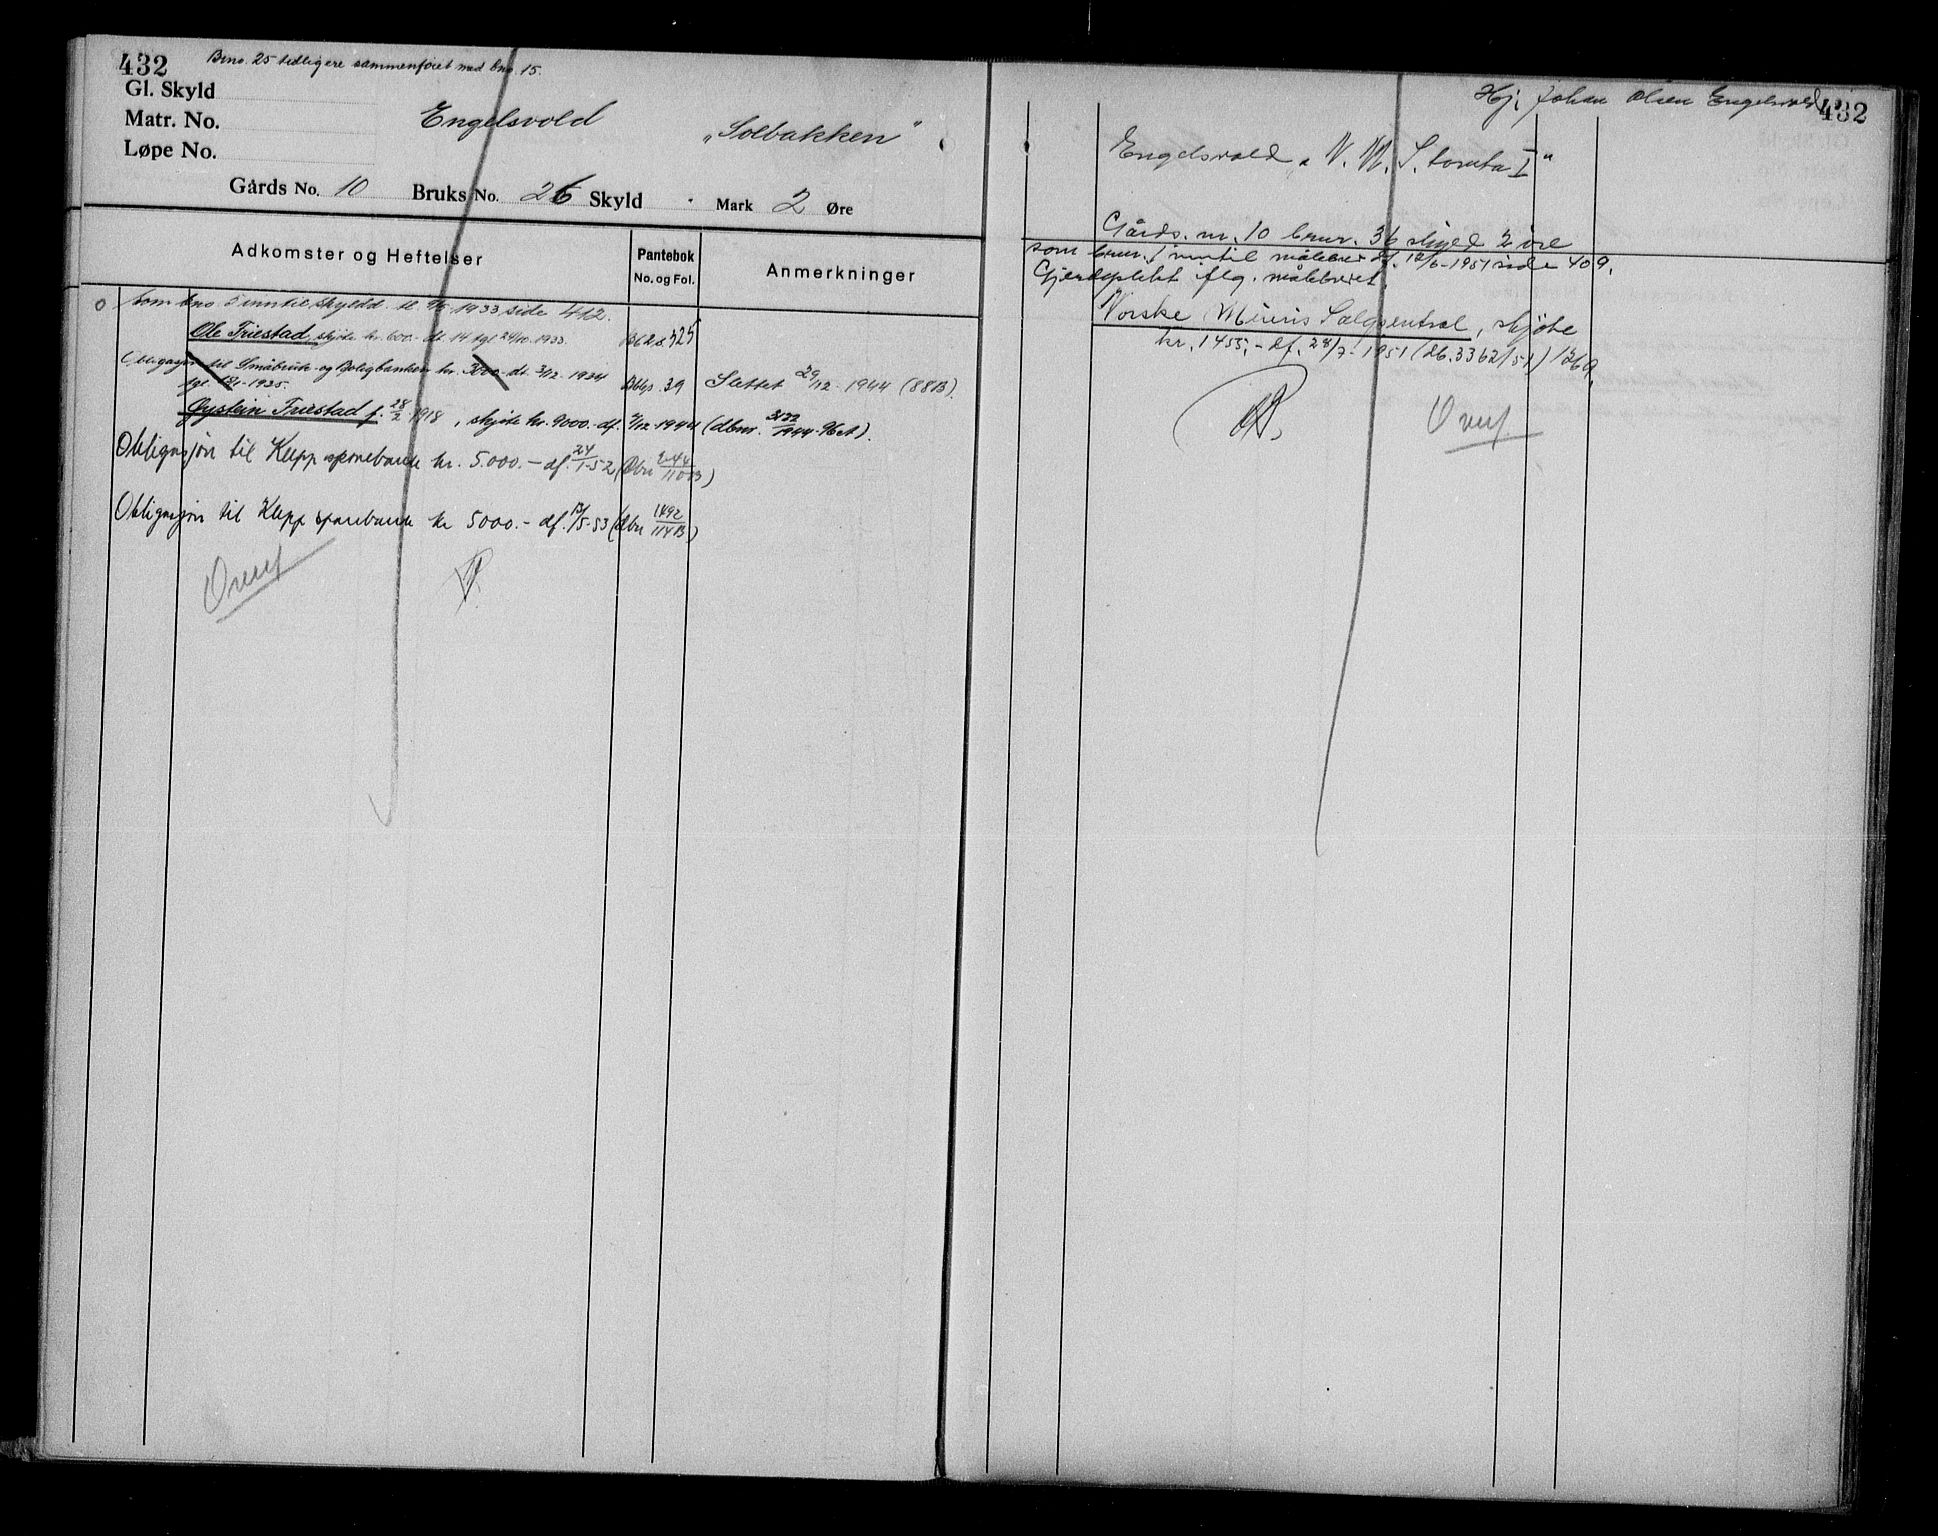 432
Brno. 25 tidligere sammenføiet med bno. 15.
Gl. Skyld
Matr. No.
Løpe No.
Engelsvold
„Solbakken"
Gårds No. 10 Bruks No. 26 Skyld Mark 2 Øre
Adkomster og Heftelser
Pantebok
No. og Fol.
Anmerkninger
Som bno. 5 inntil skyldd. 1933 side 412.
Ole Friestad, skjøte kr. 600.- dt. 14 tgl 24/10. 1933. 325
Obligasjon til Småbruk- og Boligbanken kr. 3000 dt. 3/12. 1934
tgl. 1935. 39 Slettet 29/12 1944 (88B).
Øystein Friestad f. 28/2 1918, skjøte kr. 9000.- df. /12 1944 (dbnr. 3122/1944.
Obligasjon til Klepp sparebank kr. 5.000.- df. 24/1-52 (Dbn /110B)
Obligasjon til Klepp sparebank kr 5000.- df. /5-53 (dbn 1492/114B)
Overf
432
Hj. Johan Olsen Engelsvold
Engelsvold „N. M. S. tomta I"
Gårds. nr. 10 brnr. 36 skyld 2 øre
som brnr. 1 inntil målebrev df. 12/6-1951 side 409.
Gjerdeplikt iflg. målebrevet.
Norske Meieris Salgsentral, skjøte
kr. 1455,- df. 28/7-1951 (db. 3362/51) 126A.
Overf.